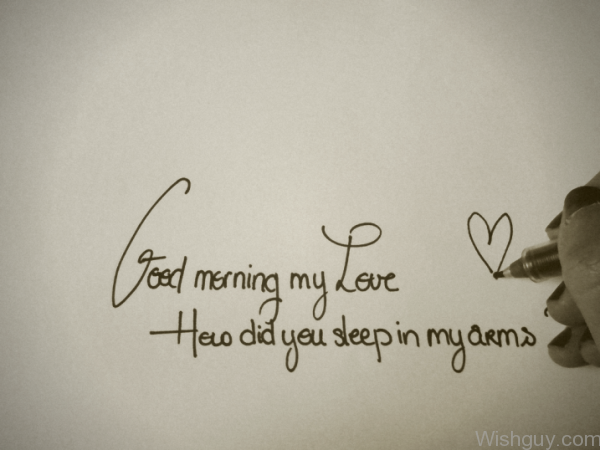 Good morning my Love
How did you sleep in my arms
Wishguy.com